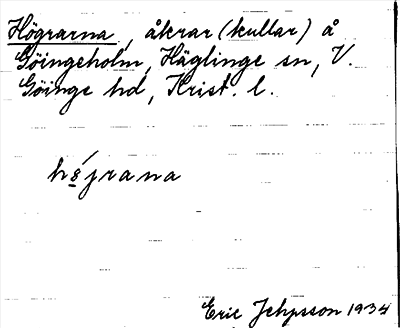 Högrarna, åkrar (kullar) å
Göingeholm, Häglinge sn, V.
Göinge hd, Krist. l.
hǿjrana
Eric Jehpsson 1934